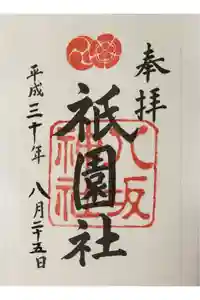 奉拝
祇園社
八坂神社
平成三十年
八月二十五日